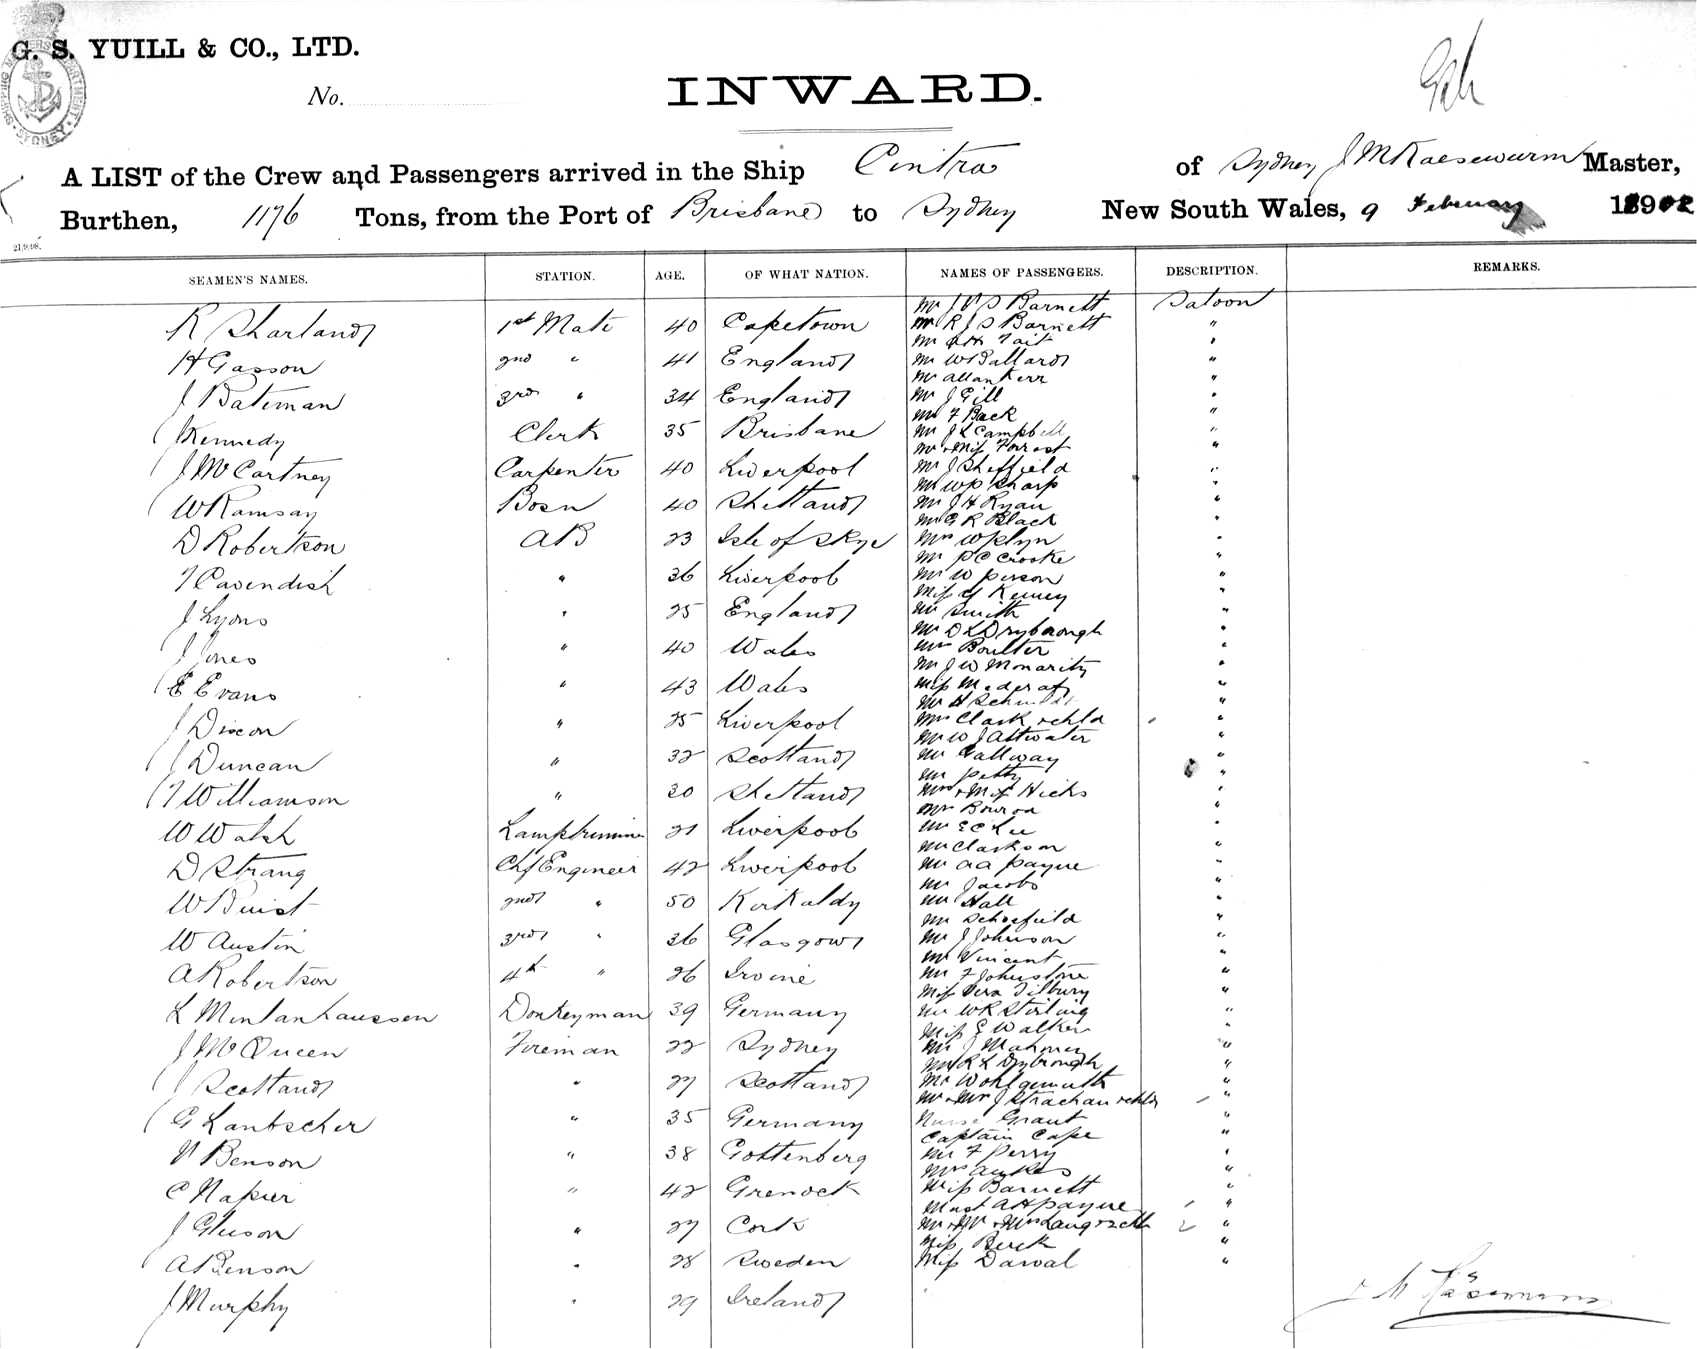 G. S. YUILL & CO., LTD.
No.
INWARD.
A LIST of the Crew and Passengers arrived in the Ship Cintra of Sydney J M Master,
Burthen, 1176 Tons, from the Port of Brisbane to Sydney New South Wales, 9 February 1902
21/9/98.
SEAMEN'S NAMES. STATION. AGE. OF WHAT NATION. NAMES OF PASSENGERS. DESCRIPTION. REMARKS.
Mr J V S Barnett Saloon
R Sharland 1st Mate 40 Capetown Mr R J S Barnett "
Mr Tait "
H Gasson 2nd " 41 England Mr W Ballard "
Mr Allan Kerr "
J Bateman 3rd " 34 England Mr J Gill "
Mr F Back "
J Kennedy Clerk 35 Brisbane Mr J L Campbell "
Mr & Miss Forrest "
J McCartney Carpenter 40 Liverpool Mr J Sheffield "
Mr W P Sharp "
W Ramsay Bosn 40 Shetland Mr J H Ryan "
Mr G R Black "
D Robertson AB 23 Isle of Skye Mrs W "
Mr P C Crooke "
T Cavendish " 36 Liverpool Mr W "
Miss "
J Lyons " 25 England Mr Smith "
Mr D L Drybrough "
J Jones " 40 Wales Mrs Boulter "
Mr J W Moriarity "
E Evans " 43 Wales Miss "
Mr H Schmidt "
J Dixon " 25 Liverpool Mrs Clark & chld "
Mr W J Attwater "
J Duncan " 32 Scotland Mr Gallway "
Mr Petty "
T Williamson " 20 Shetland Mrs & Miss Hicks "
Mr "
W Walsh Lamptrimmer 21 Liverpool Mr E C Lee "
Mr Clarkson "
D Strang Chf Engineer 42 Liverpool Mr A A Payne "
Mr Jacobs "
W Buist 2nd " 50 Kirkaldy Mr Hall "
Mr Schofield "
W Austin 3rd " 36 Glasgow Mr J Johnson "
Mr Vincent "
A Robertson 4th " 26 Irvine Mr F Johnstone "
Miss Vera Tilbury "
L Donkeyman 39 Germany Mr W R Stirling "
Miss E Walker "
J McQueen Fireman 22 Sydney Mr J Mahoney "
Mrs R L Drybrough "
J Scotland " 27 Scotland Mr Wohlgemuth "
Mr & Mrs J Strachan & chld "
G Lantscher " 35 Germany Nurse Grant "
Captain Cape "
V Benson " 38 Gottenberg Mr F Perry "
Mrs "
C Napier " 42 Grenock Miss Barnett "
Mast A H Payne "
J Gleeson " 27 Cork Mr & Mrs Lang & 2 ch 2 "
Miss "
A Benson " 28 Sweden Miss Darval "
J Murphy " 29 Ireland